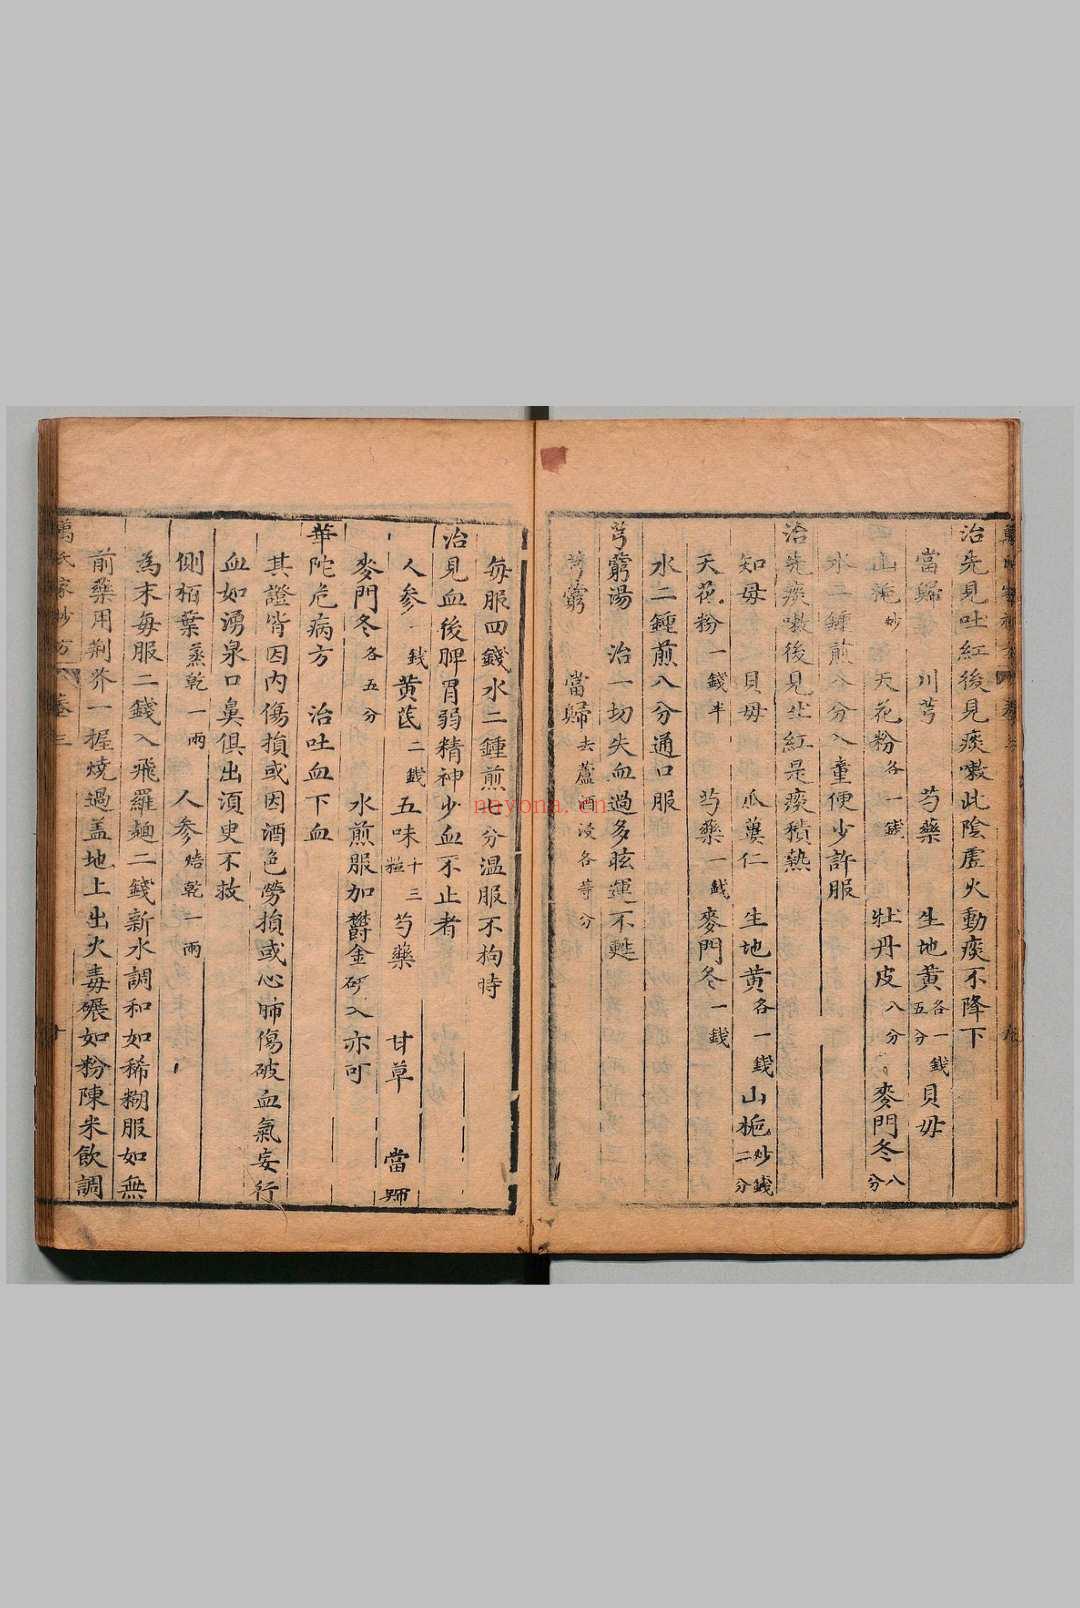 治先見吐紅後見痰嗽此陰虛火動痰不降下
當歸 川芎 芍藥 生地黃各一錢五分 貝母
山梔炒 天花粉各一錢 牡丹皮八分 麥門冬八分
水二鍾煎八分入童便少許服
治先痰嗽後見吐紅是痰積熱
知母 貝母 瓜蔞仁 生地黃各一錢 山梔炒二錢分
天花粉一錢半 芍藥一錢 麥門冬一錢
水二鍾煎八分通口服
芎藭湯 治一切失血過多眩運不甦
芎藭 當歸去蘆酒浸各等分
每服四錢水二鍾煎八分溫服不拘時
治見血後脾胃弱精神少血不止者
人參一錢 黃芪二錢 五味十三粒 芍藥 甘草 當歸
麥門冬各五分 水煎服加欝金研入亦可
華陀危病方 治吐血下血
其證皆因內傷損或因酒色勞損或心肺傷破血氣妄行
血如湧泉口鼻俱出須臾不救
側栢葉蒸乾一兩 人參焙乾一兩
為末每服二錢入飛羅麵二錢新水調和如稀糊服如無
前藥用荊芥一握燒過盖地上出火毒碾如粉陳米飲調
萬氏家抄方 卷三 十
nuyona.cn